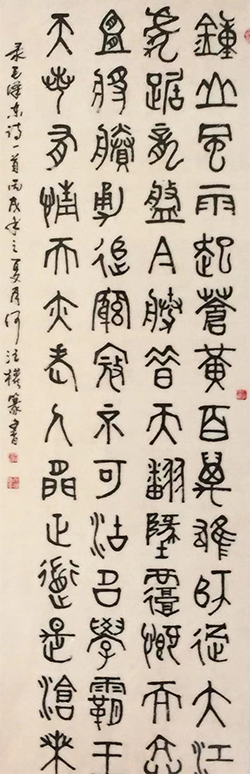 鍾山風雨起蒼黃百萬雄師過大江
虎踞龍盤今勝昔天翻地覆慨而慷
宜將賸勇追窮寇不可沽名學霸王
天若有情天亦老人間正道是滄桑
录毛澤东诗一首丙戌年之夏月何法權篆書